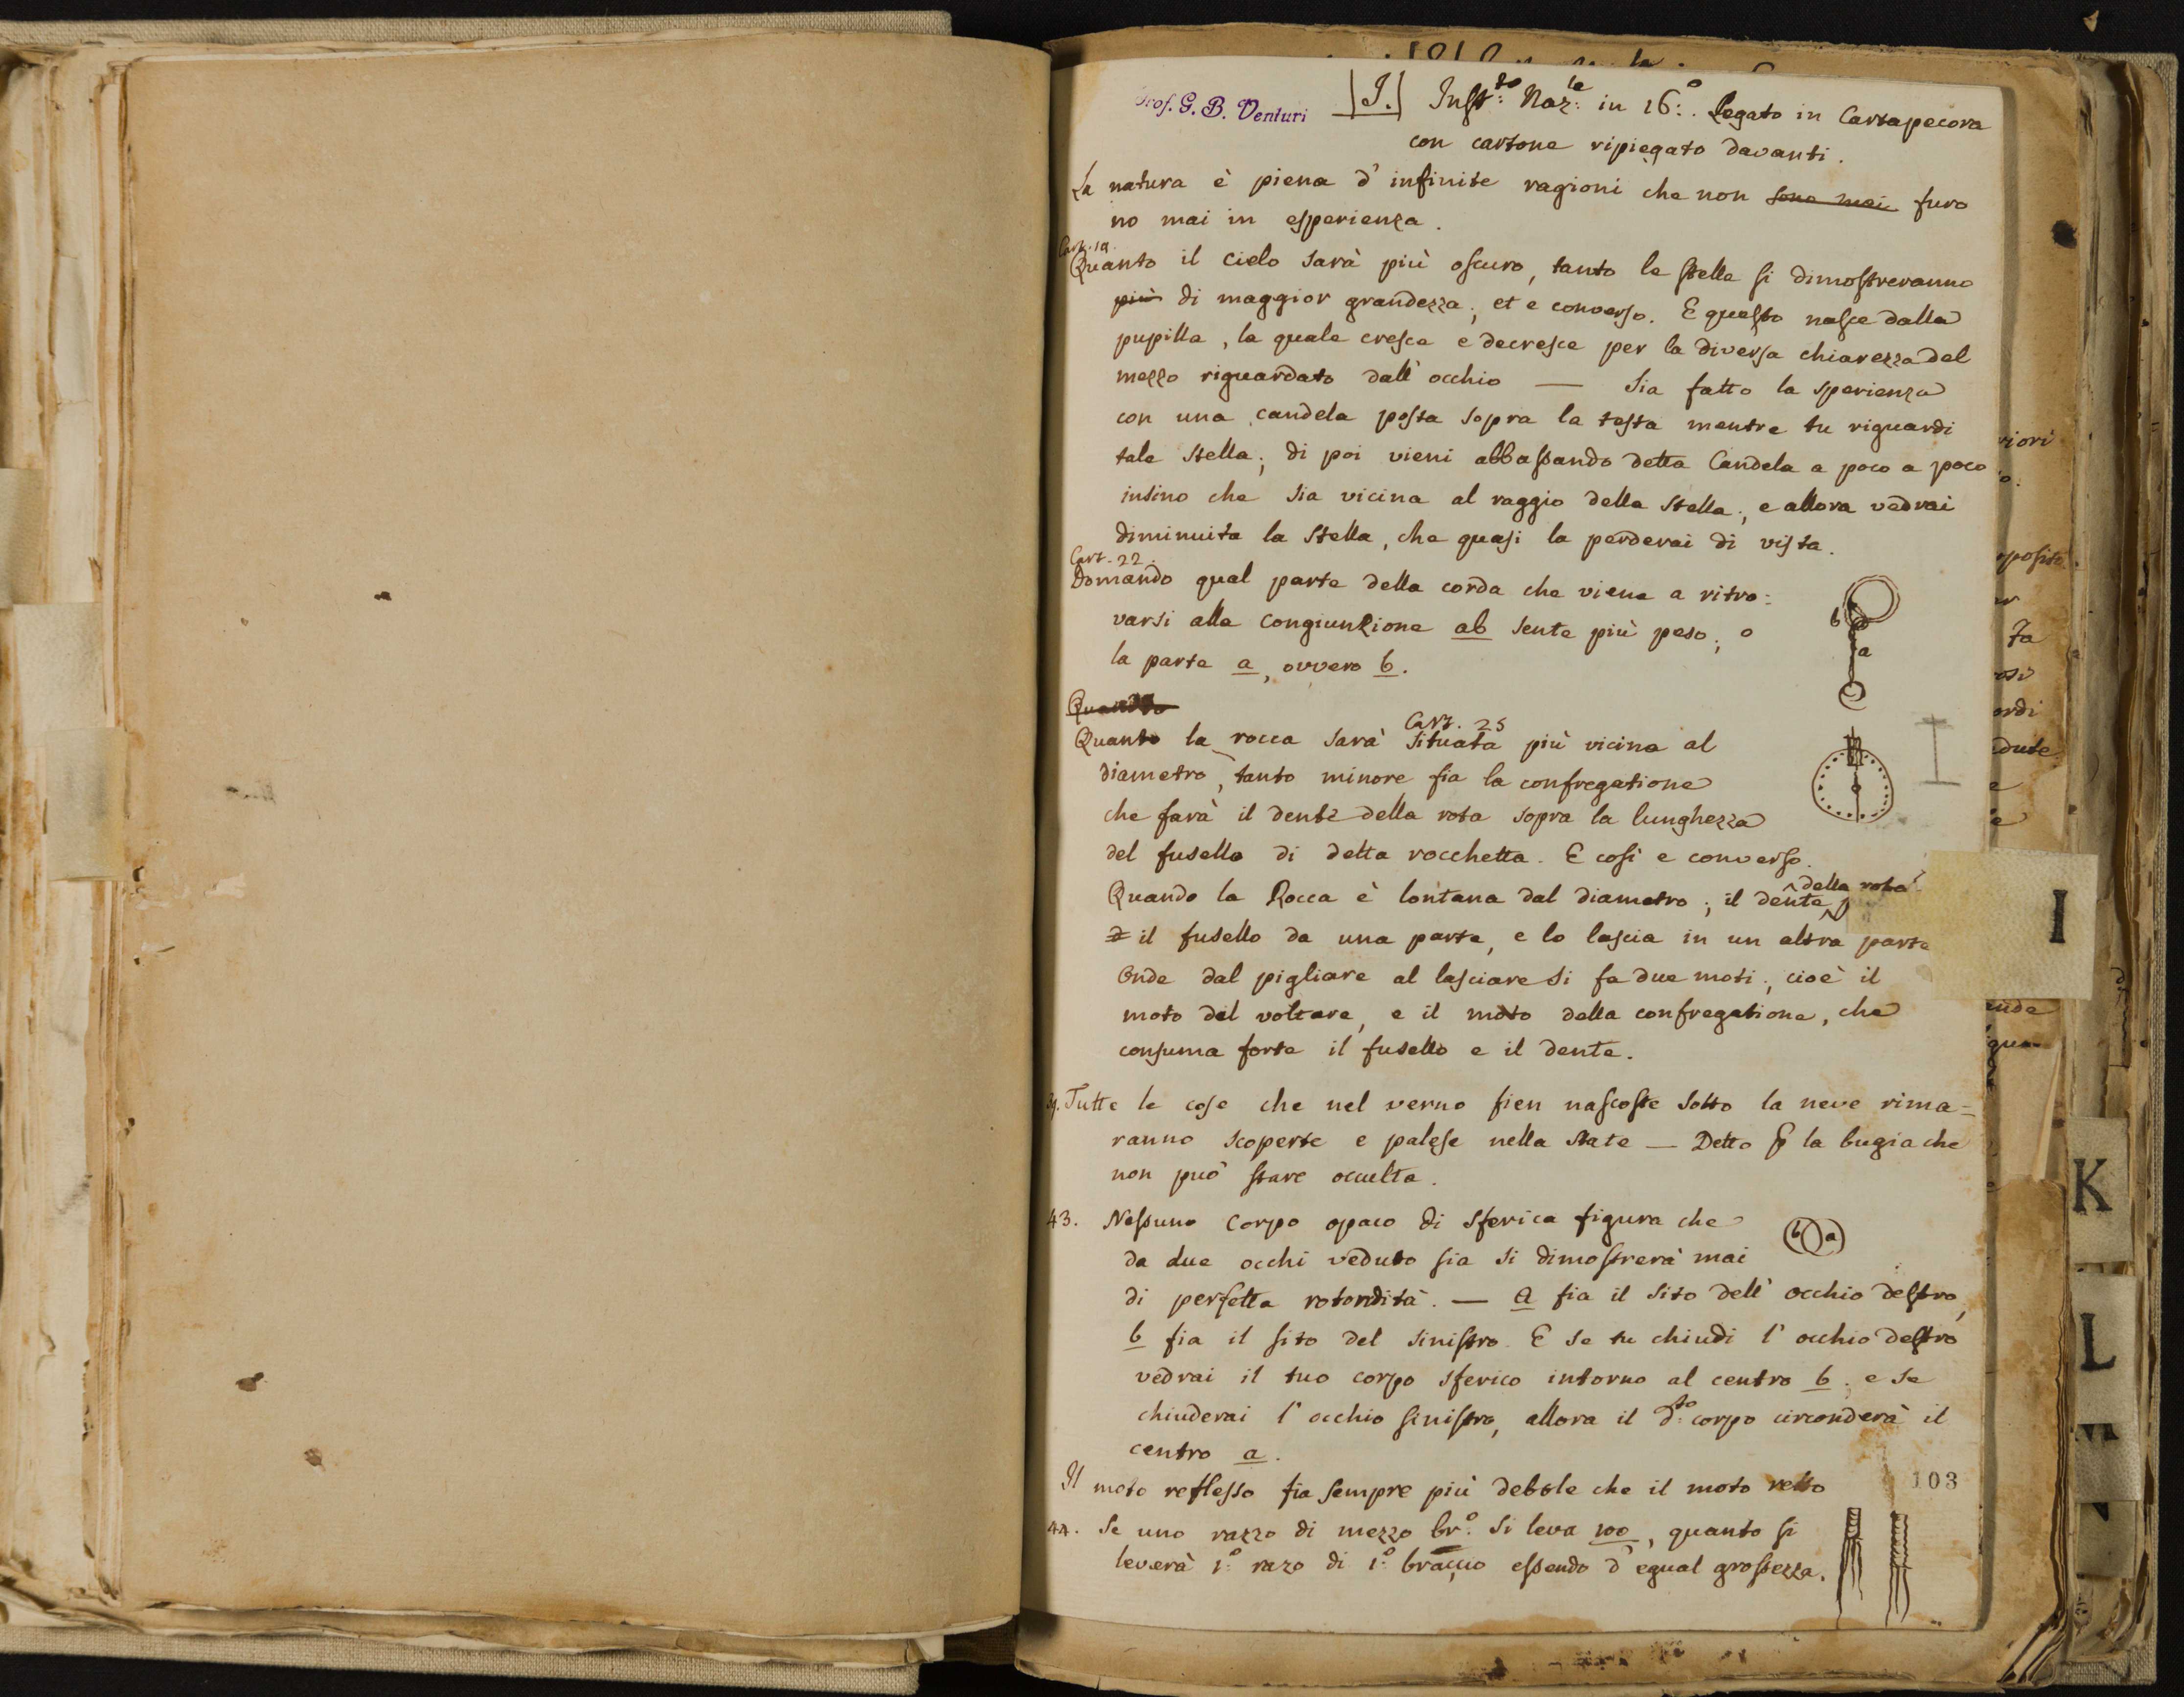 Prof. G. B. Venturi
|I.| Inst:to Naz:le in 16:o. Legato in Cartapecora
con cartone ripiegato davanti.
La natura è piena d'infinite ragioni che non sono mai furo
no mai in esperienza.
Cart. 19.
Quanto il cielo sarà più oscuro, tanto le stelle si dimostreranno
più di maggior grandezza; et e converso. E questo nasce dalla
pupilla, la quale cresce e decresce per la diversa chiarezza del
mezzo riguardato dall'occhio — Sia fatto la sperienza
con una candela posta sopra la testa mentre tu riguardi
tale stella; di poi vieni abbassando detta Candela a poco a poco
insino che sia vicina al raggio della stella; e allora vedrai
diminuita la stella, che quasi la perderai di vista.
Cart. 22.
Domando qual parte della corda che viene a ritro=
varsi alla congiunzione ab sente più peso; o
la parte a, ovvero b.
b
a
Quando
Cart. 25
Quanto la rocca sarà situata più vicina al
diametro, tanto minore fia la confregatione
che farà il dente della rota sopra la lunghezza
del fusello di detta rocchetta. E così e converso.
della rota
Quando la Rocca è lontana dal diametro; il dente
il fusello da una parte, e lo lascia in un altra parte
Onde dal pigliare al lasciare si fa due moti; cioè il
moto del voltare, e il moto della confregatione, che
consuma forte il fusello e il dente.
39. Tutte le cose che nel verno fien nascoste sotto la neve rima=
ranno scoperte e palese nella state — Detto p la bugia che
non può stare occulta.
43. Nessuno corpo opaco di sferica figura che
da due occhi veduto sia si dimostrerà mai
b a
di perfetta rotondità. — a fia il sito dell'occhio destro,
b fia il sito del sinistro. E se tu chiudi l'occhio destro
vedrai il tuo corpo sferico intorno al centro b; e se
chiuderai l'occhio sinistro, allora il d:to corpo circonderà il
centro a.
Il moto reflesso fia sempre più debole che il moto retto
103
44. Se uno razzo di mezzo br:o si leva 100, quanto si
leverà 1:o razo di 1:o braccio essendo d'egual grossezza.
riori
oposito
ta
osi
ordi
dute
I
K
L